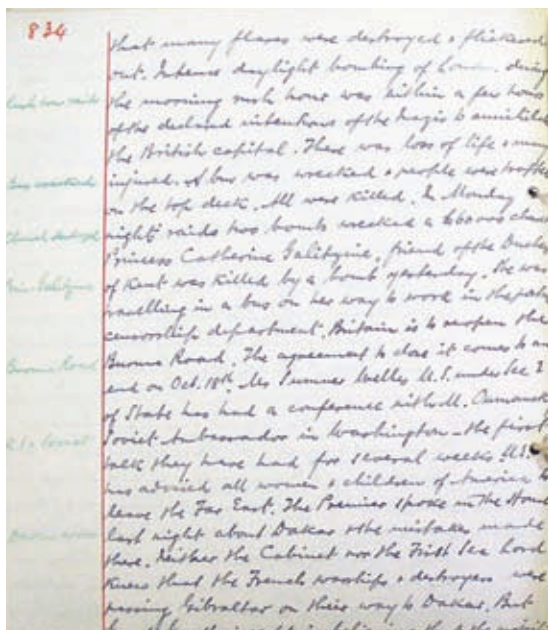 834
that many flares were destroyed & flickered
out. Intense daylight bombing of London during
the morning rush hour was within a few hours
of the declared intentions of the Nazis to annihilate
the British capital. There was loss of life & many
injured. A bus was wrecked & people were trapped
on the top deck. All were killed. In Monday
night's raids two bombs wrecked a church
Princess Catherine Galitzine, friend of the Duchess
of Kent was killed by a bomb yesterday. She was
travelling in a bus on her way to work in the
censorship department. Britain is to reopen the
Burma Road. The agreement to close it comes to an
end on Oct. 18th. Mr Sumner Welles U.S. under Sec
of State has had a conference with M. Oumansk
Soviet Ambassador in Washington - the first
talk they have had for several weeks. U.S.
has advised all women & children of America to
leave the Far East. The Premier spoke in the House
last night about Dakar & the mistakes made
there. Neither the Cabinet nor the First Sea Lord
knew that the French warships & destroyers were
passing Gibraltar on their way to Dakar. But
Rush hour raids
Bus wrecked
Church destroyed
Prin. Galitzine
Burma Road
U.S. & Soviet
Dakar